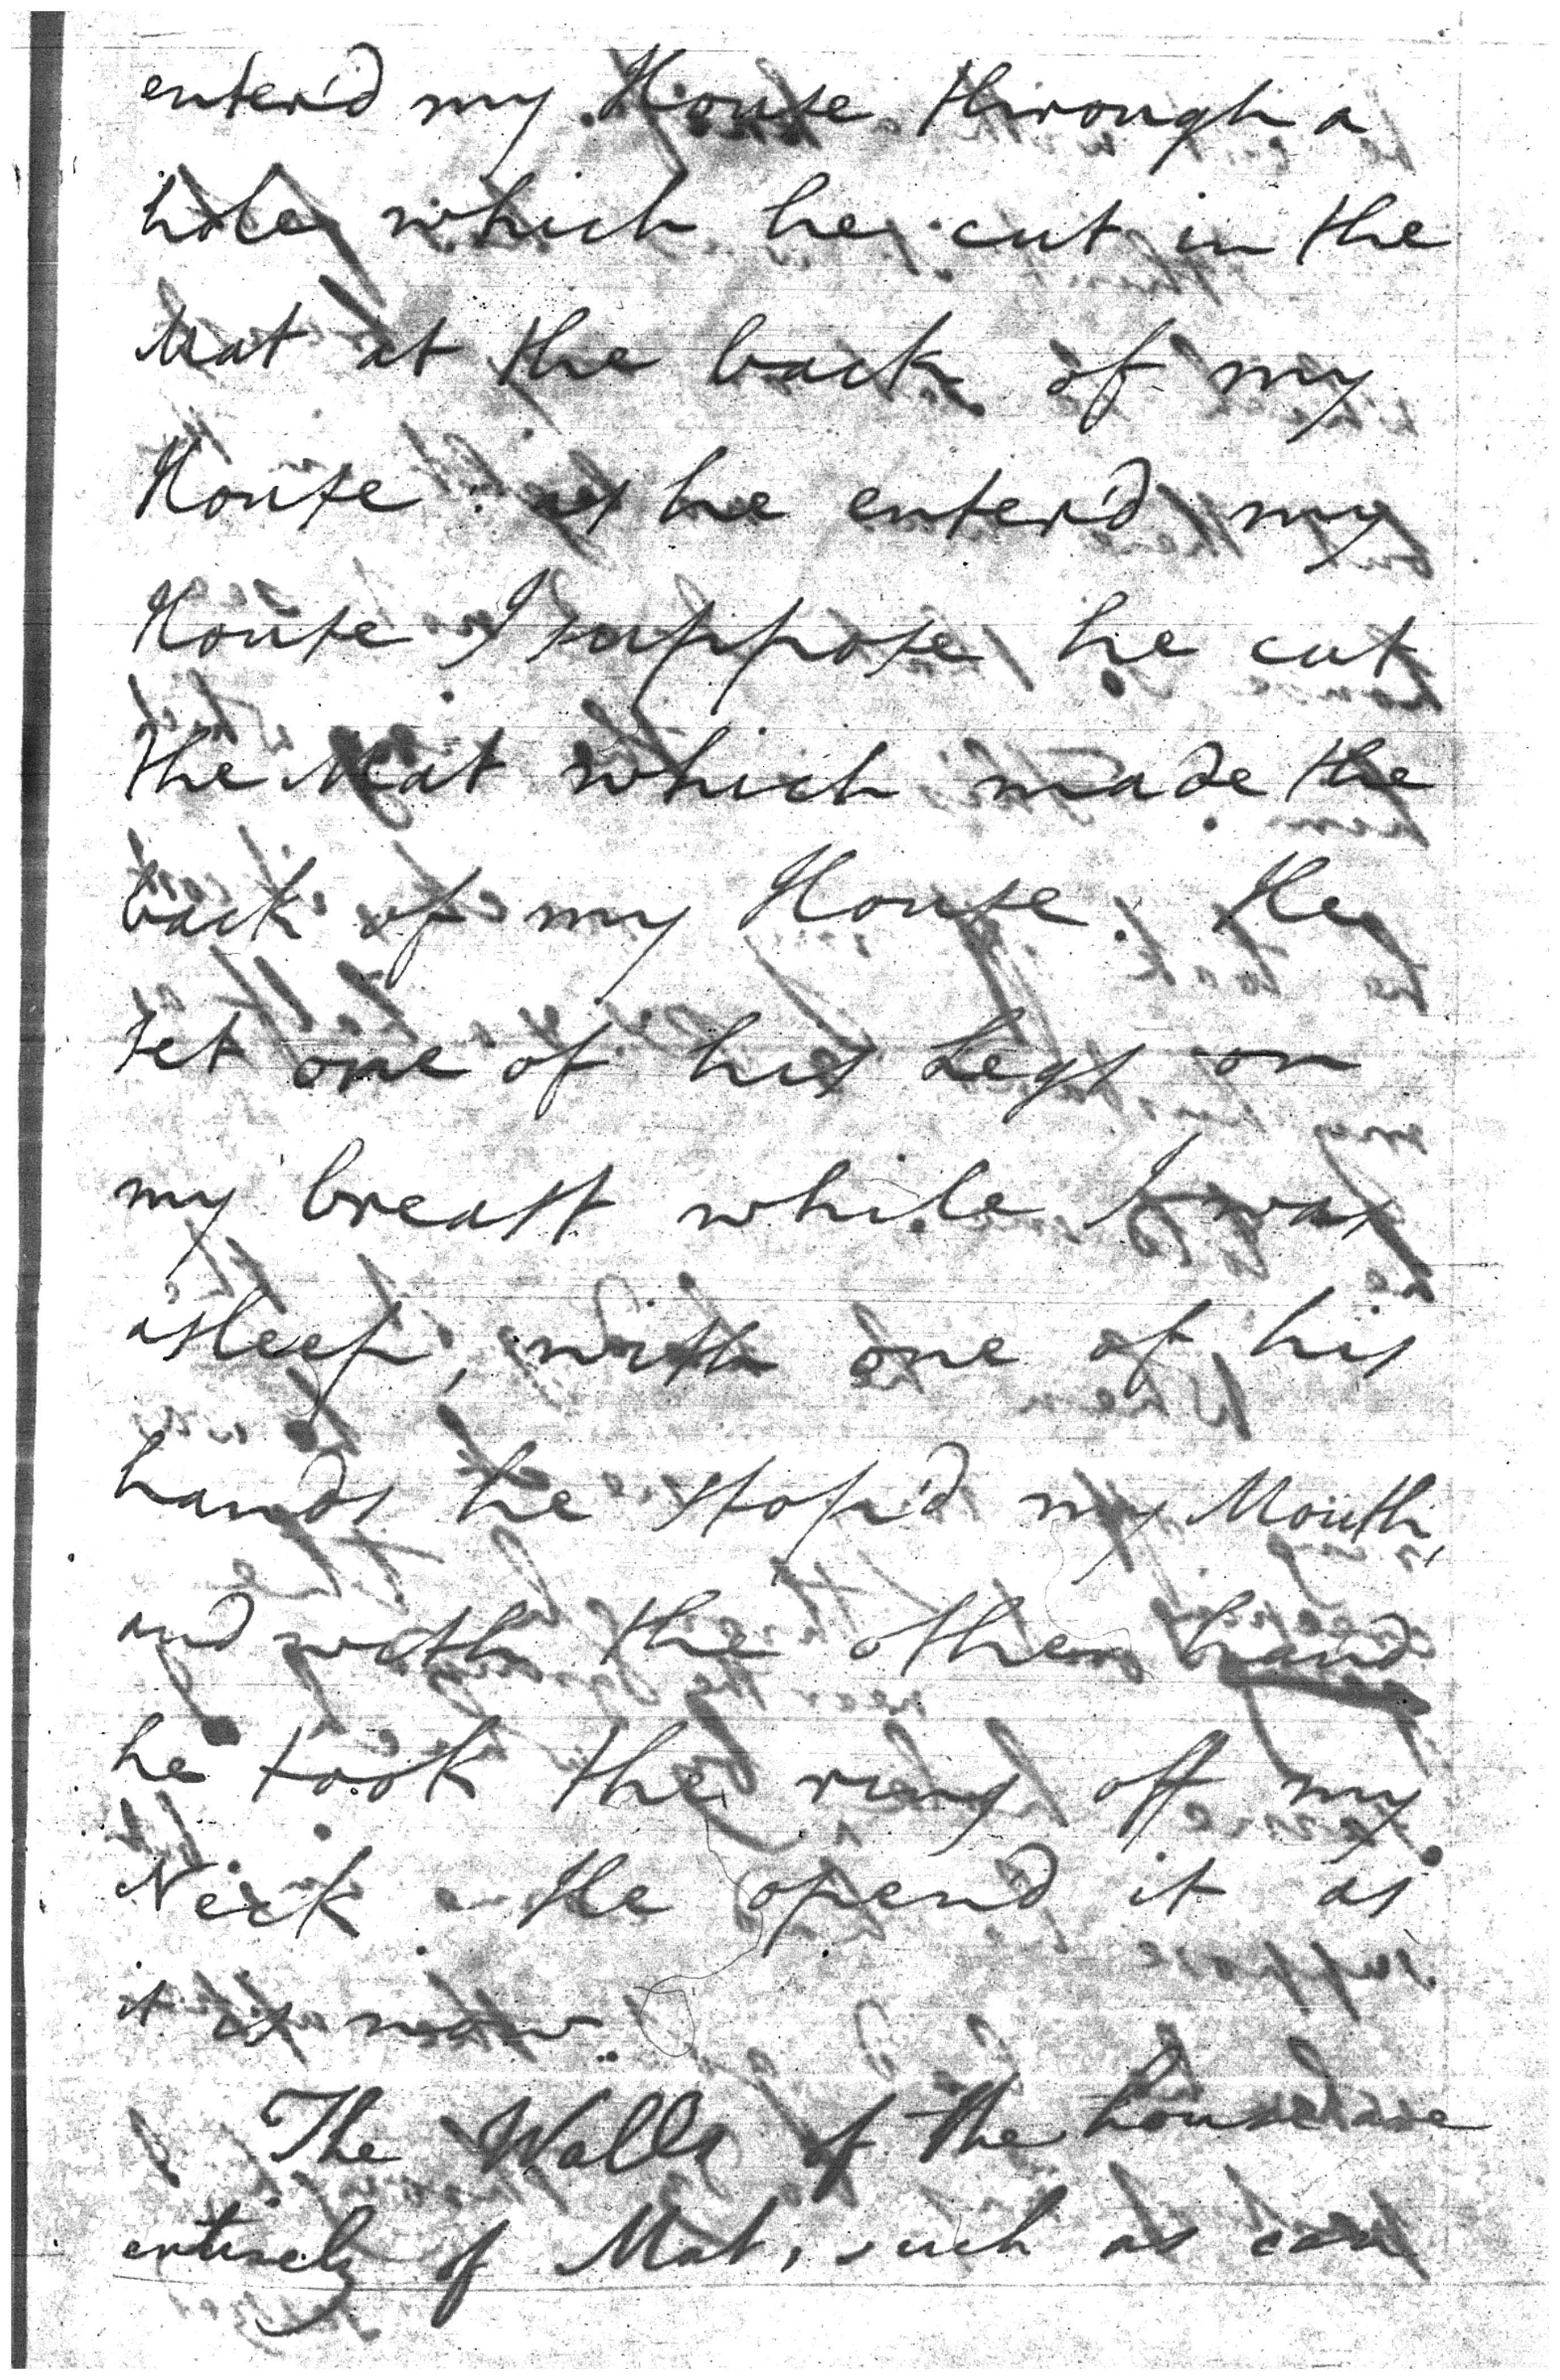 enter'd my House through a
hole which he cut in the
Mat at the back of my
House. as he enter'd my
House I suppose he cut
the Mat which made the
back of my House. He
set one of his Legs on
my breast while I was
asleep, with one of his
hands he stop'd my Mouth,
and with the other hand
he took the ring off my
Neck - He open'd it as
it is now.
The Walls of the house are
entirely of Mat, such as can